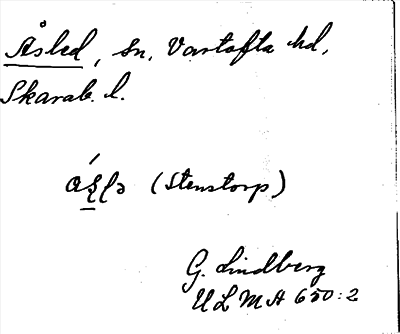 Åsled, sn, Vartofta hd,
Skarab. l.
(Stenstorp)
G. Lindberg
ULMA 650:2